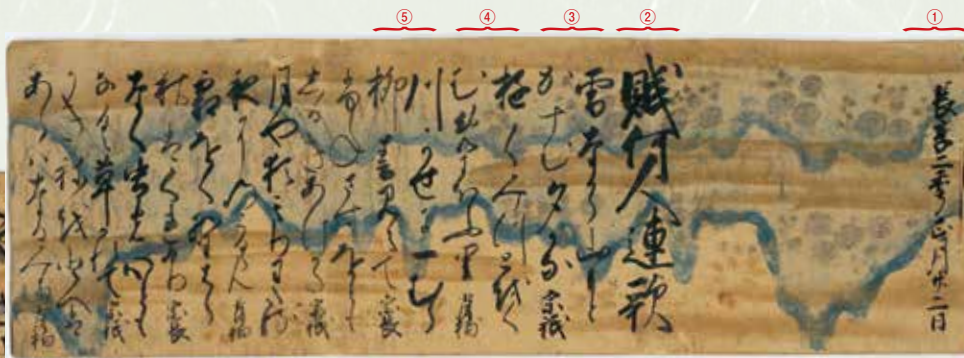 ①
長享二年正月廿二日
②
賦何人連歌
③
雪なから山もと
かすむ夕かな 宗祇
④
行水とをく
むめにほふ里 肖柏
⑤
川かせに一むら
柳春見えて 宗長
舟さすをとも
しるきあけ 宗祇
月や猶きりわたる
夜に 肖柏
霜をく野はら
秋はくれけり 宗長
なく虫の心とも
なく草かれて 宗祇
かきねをとへは
あらはなる 肖柏